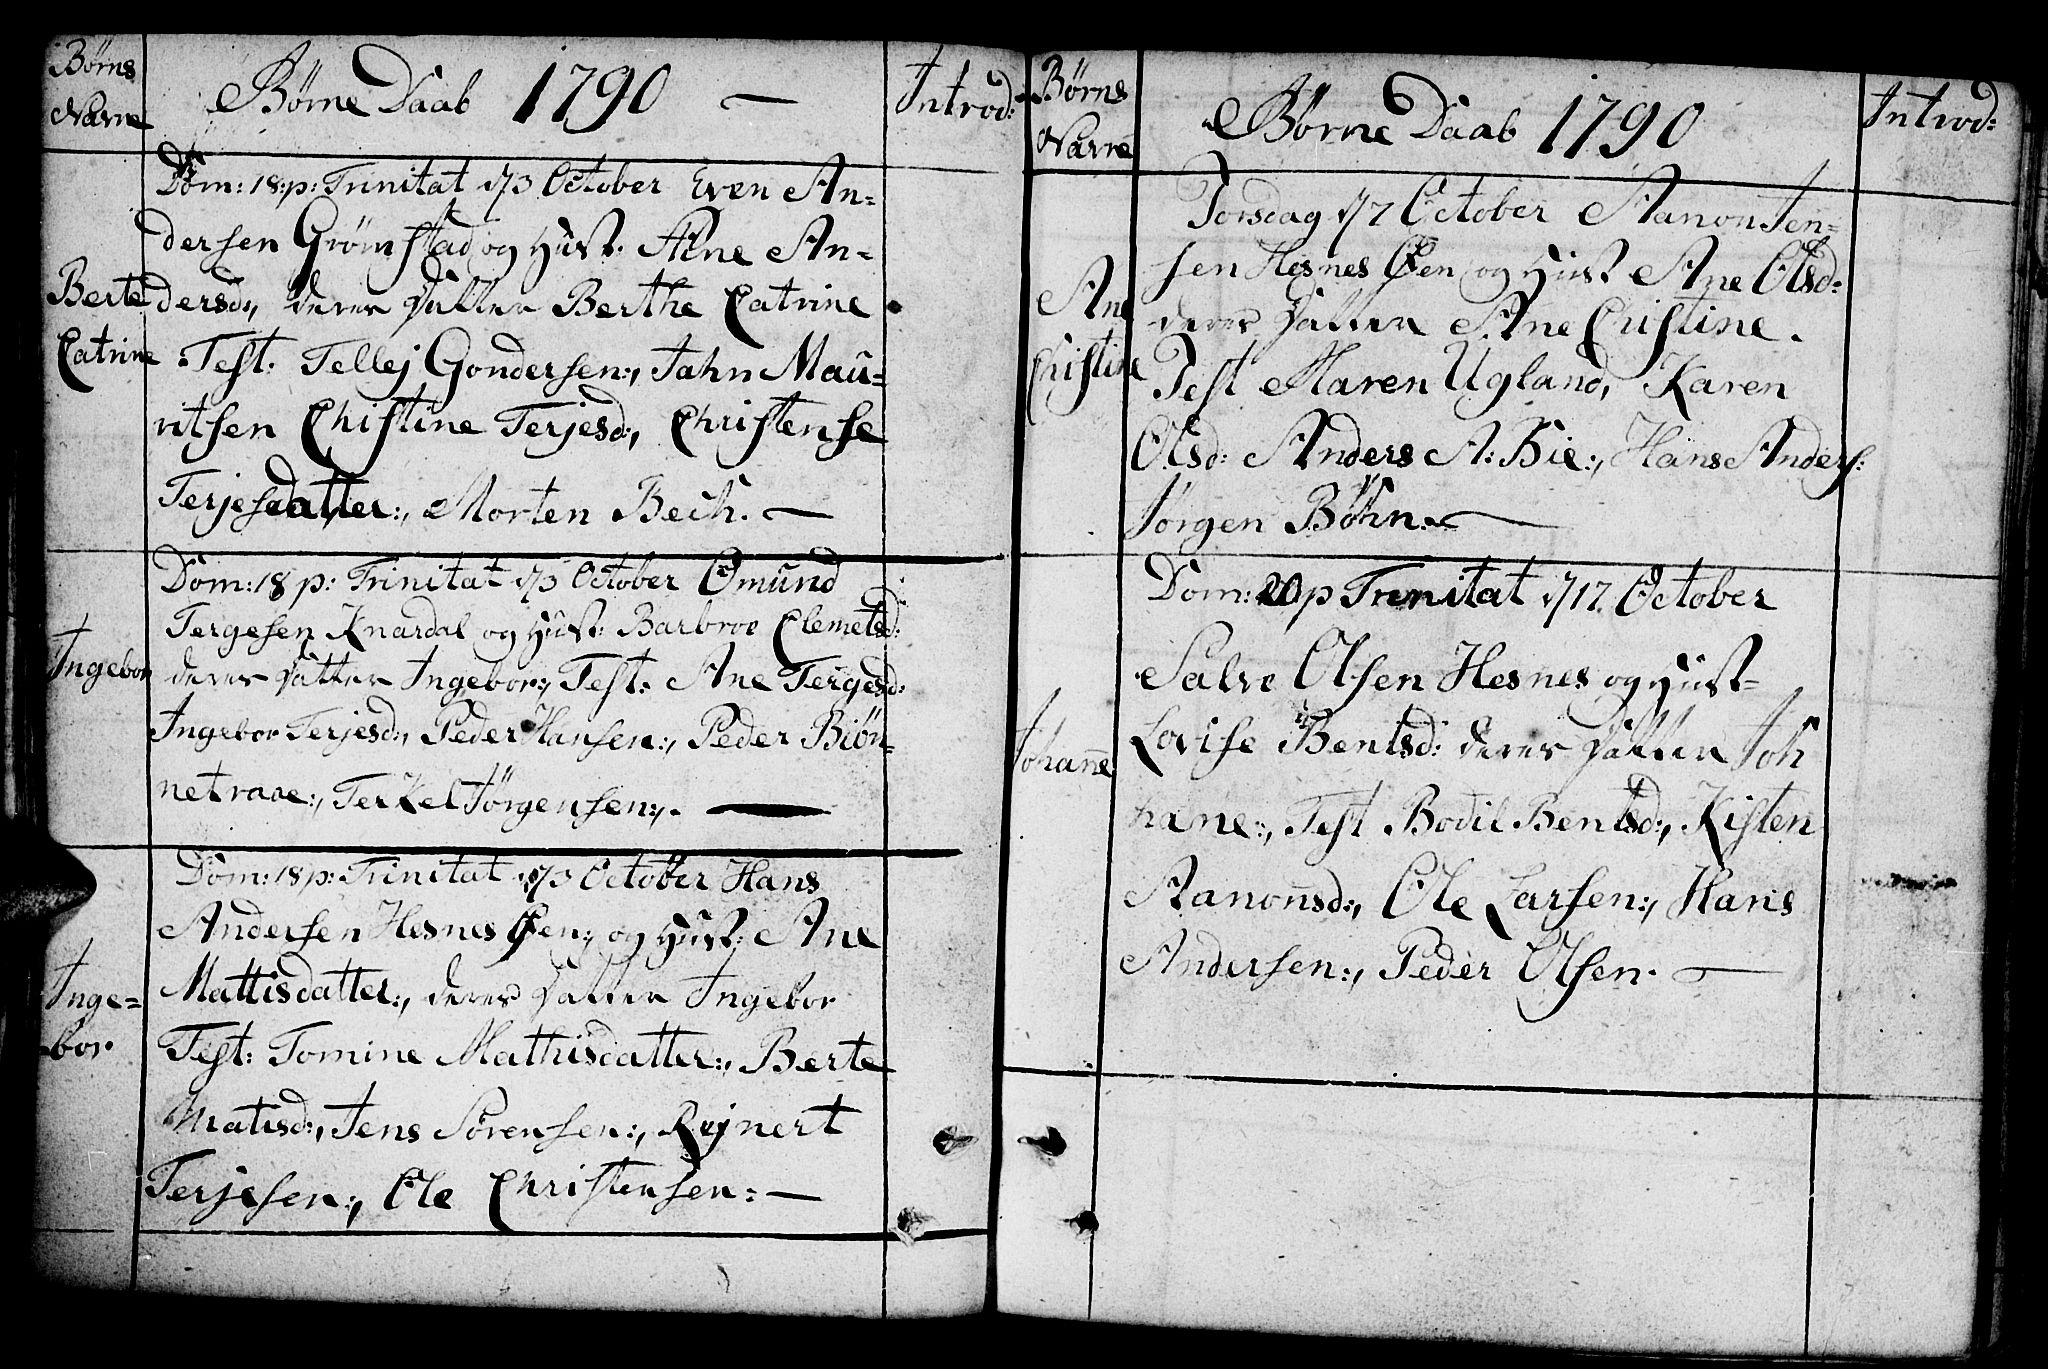 Børns
Navne
Børne Daab 1790 —
Introd:
Dom: 18: p: Trinitat d/3 October Even An-
dersen Grømstad og Hust. Ane An-
Berte
dersd:, deres Datter Berthe Catrine
Catrine
Test. Tellej Gondersen:, Jahn Mau-
ritsen Christine Terjesd:, Christense
Terjesdatter:, Morten Bech. —
Dom: 18 p: Trinitat d/3 October Omund
Tergesen Knardal og Hust: Barbroe Clemetsd:
Ingebor
deres Datter Ingebor:, Test: Ane Tergesd:
Ingebor Terjesd:, Peder Hansen:, Peder Biøn-
netraae:, Terkel Jørgensen:,. —
Dom: 18 p: Trinitat d/3 October Hans
Andersen Hesnes Øen:, og Hust: Ane
Inge-
Mattisdatter:, deres Datter Ingebor
bor
Test: Tomine Mathisdatter:, Berte
Matisd:, Jens Sørensen:, Rejnert
Terjesen:, Ole Christensen: —
Børns
Navne
Børne Daab 1790
Introd:
Torsdag d/7 October Aanon Jen-
sen Hesnes Øen og Hust Ane Olsd:
Ane
deres Datter Ane Cristine.
Christine
Test Maren Ugland, Karen
Olsd: Anders A: Bie:, Hans Anders:
Jørgen Bøhn. —
Dom: 20 p Trinitat d/17. October
Salve Olsen Hesnes og Hust-
Johane
Lovise Bentsd: deres Datter Joh
hane:, Test Bodil Bentsd:, Kisten
Aanonsd:, Ole Larsen:, Hans
Andersen:, Peder Olsen. —